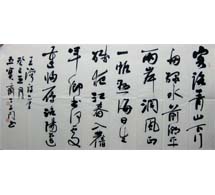 客路青山下行
舟绿水前潮平
两岸阔风正
一帆悬海日生
残夜江春入旧
年乡书何处
达归雁洛阳边